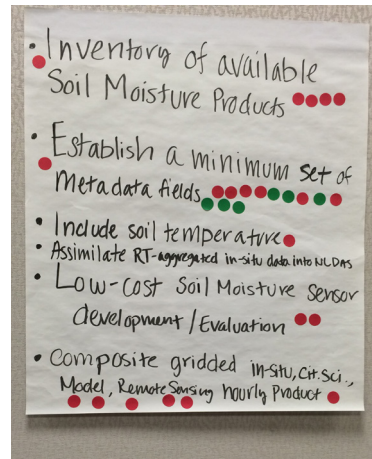 • Inventory of available
Soil Moisture Products
• Establish a minimum set of
Metadata fields
• Include soil temperature
• Assimilate RT-aggregated in-situ data into NLDAS
• Low-cost Soil Moisture Sensor
development/Evaluation
• Composite gridded in-situ, Cit. Sci.,
Model, Remote Sensing hourly Product